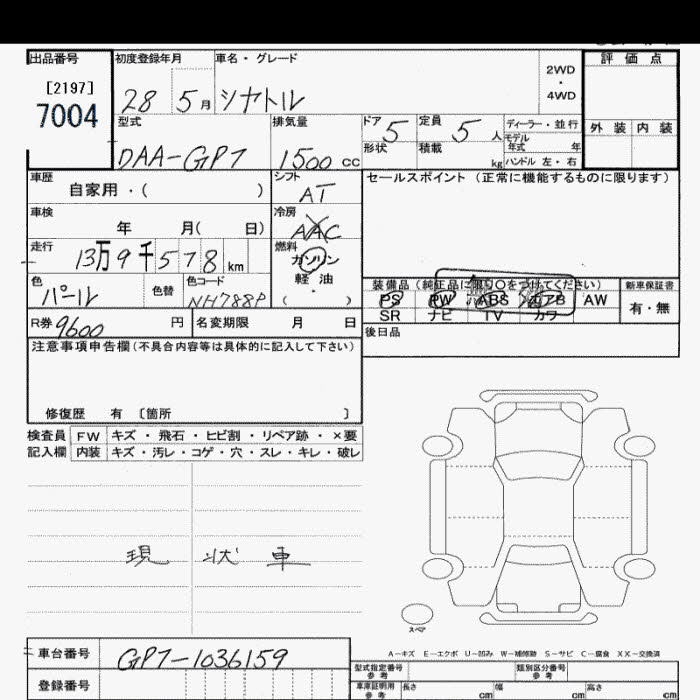 出品番号 初度登録年月 車名・グレード 評価点
[2197]
7004
28 5月 シヤトル
2WD
・
4WD
型式 排気量 ドア 5 定員 5人 ディーラー・並行
モデル
年式 年
外装 内装
DAA-GP7 1500cc 形状 積載 kg ハンドル 左・右
車歴 シフト セールスポイント (正常に機能するものに限ります)
自家用・( ) AT
車検 冷房
年 月( 日) AAC
走行 燃料
13万9千578km ガソリン
軽油
( )
色 色替 色コード
パール NH788P
装備品 (純正品に限り○をつけてください) 新車保証書
PS PW ABS エアB AW 有・無
SR ナビ TV カワ
R券 9600円 名変期限 月 日 後日品
注意事項申告欄(不具合内容等は具体的に記入して下さい)
修復歴 有 〔箇所 〕
検査員 FW キズ・飛石・ヒビ割・リペア跡・×要
記入欄 内装 キズ・汚レ・コゲ・穴・スレ・キレ・破レ
現状車
スペア
A-キズ E-エクボ U-凹み W-補修跡 S-サビ C-腐食 XX-交換済
車台番号 GP7-1036159
型式指定番号 参考 類別区分番号 参考
登録番号
車庫証明用 参考 長さ cm 幅 cm 高さ cm